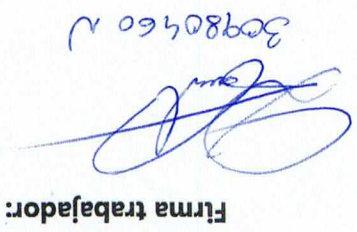 Firma trabajador:
30980460 N